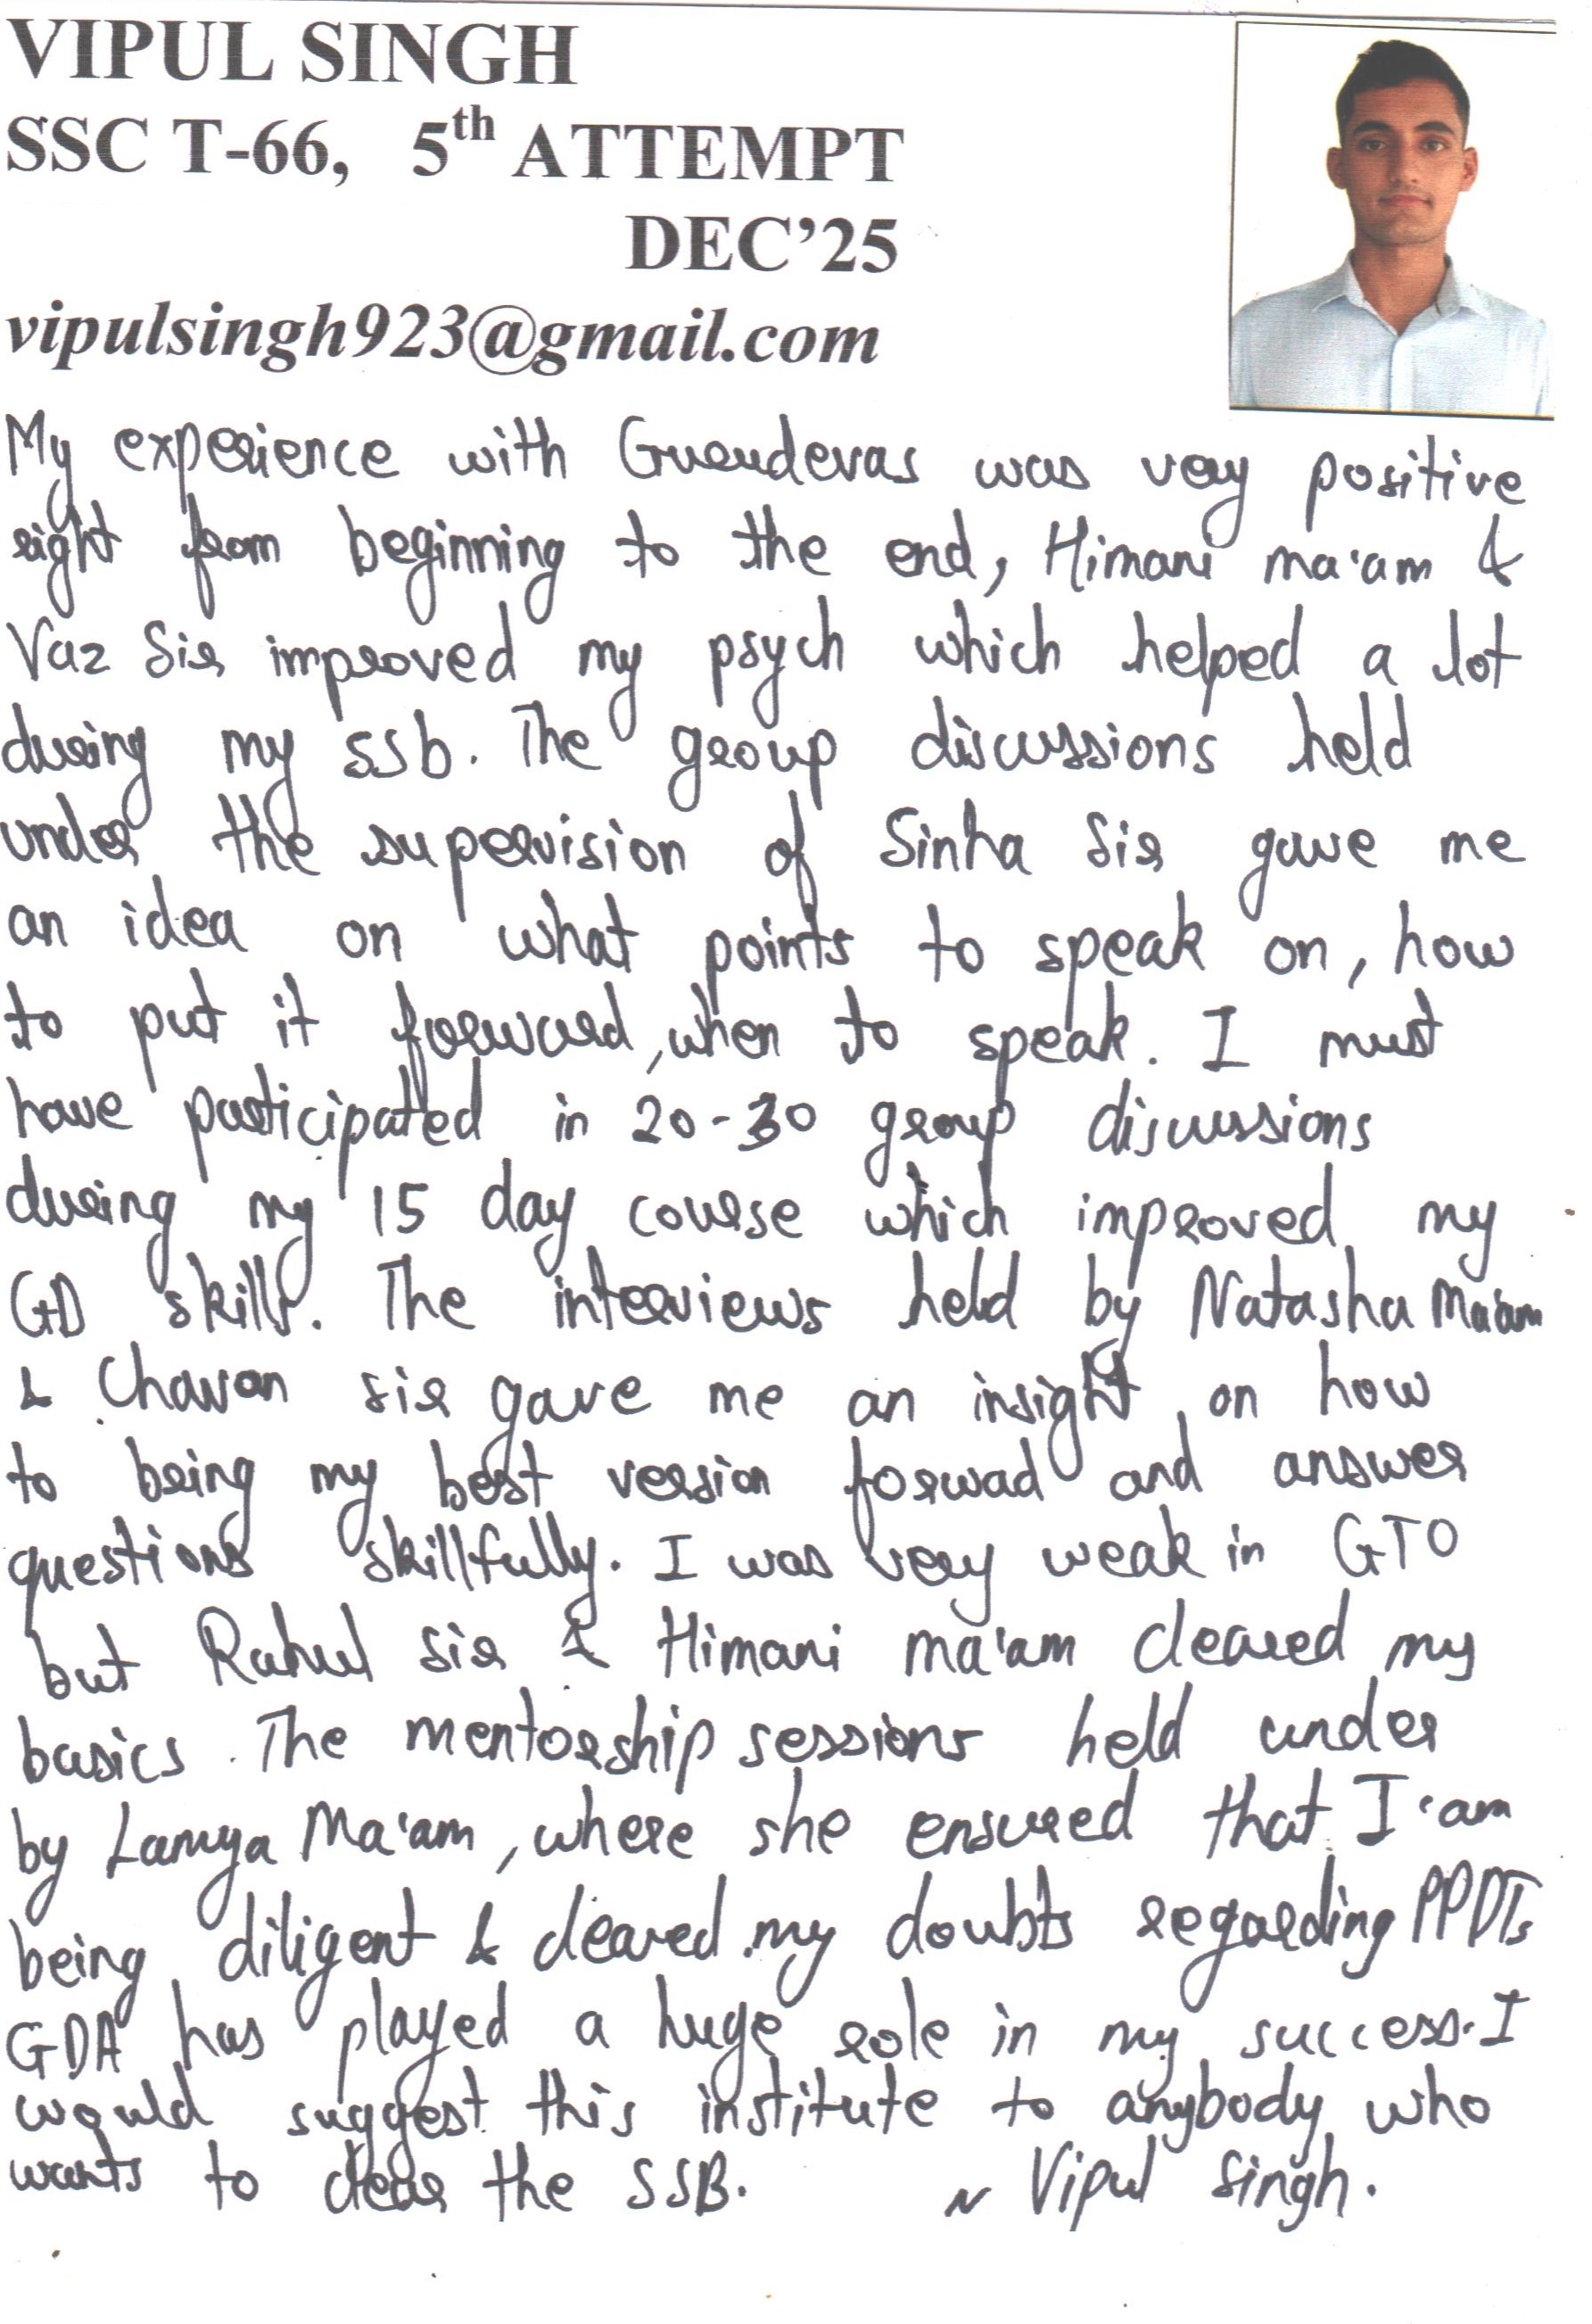 VIPUL SINGH
SSC T-66, 5th ATTEMPT
DEC'25
vipulsingh923@gmail.com
My experience with Gurudevas was very positive
right from beginning to the end, Himani ma'am &
Vaz Sir improved my psych which helped a lot
during my ssb. The group discussions held
under the supervision of Sinha Sir gave me
an idea on what points to speak on, how
to put it forward, when to speak. I must
have participated in 20-30 group discussions
during my 15 day course which improved my
GD skills. The interviews held by Natasha Ma'am
& Chavan sir gave me an insight on how
to being my best version forwad and answer
questions skillfully. I was very weak in GTO
but Rahul sir & Himani ma'am cleared my
basics. The mentorship sessions held under
by Lamya Ma'am, where she ensured that I'am
being diligent & cleared my doubts regarding PPDTs
GDA has played a huge role in my success. I
would suggest this institute to anybody who
wants to clear the SSB. ~ Vipul Singh.